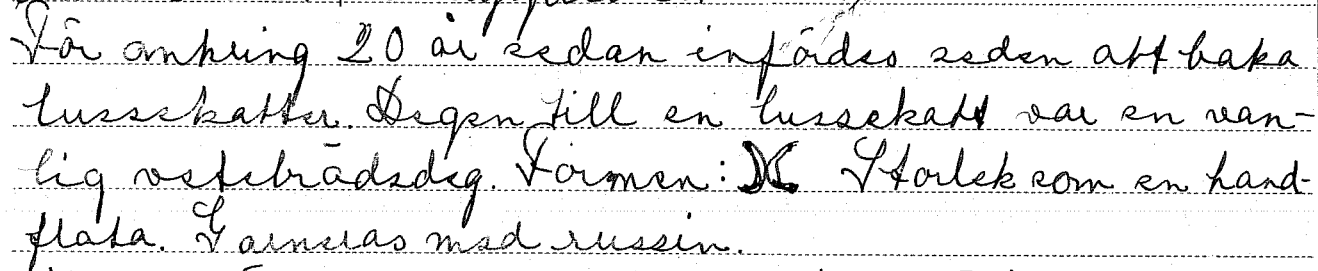 För omkring 20 år sedan infördes seden att baka
lussekatter. Degen till en lussekatt var en van-
lig vetebrödsdeg. Formen: Storlek som en hand-
flata. Garneras med russin.